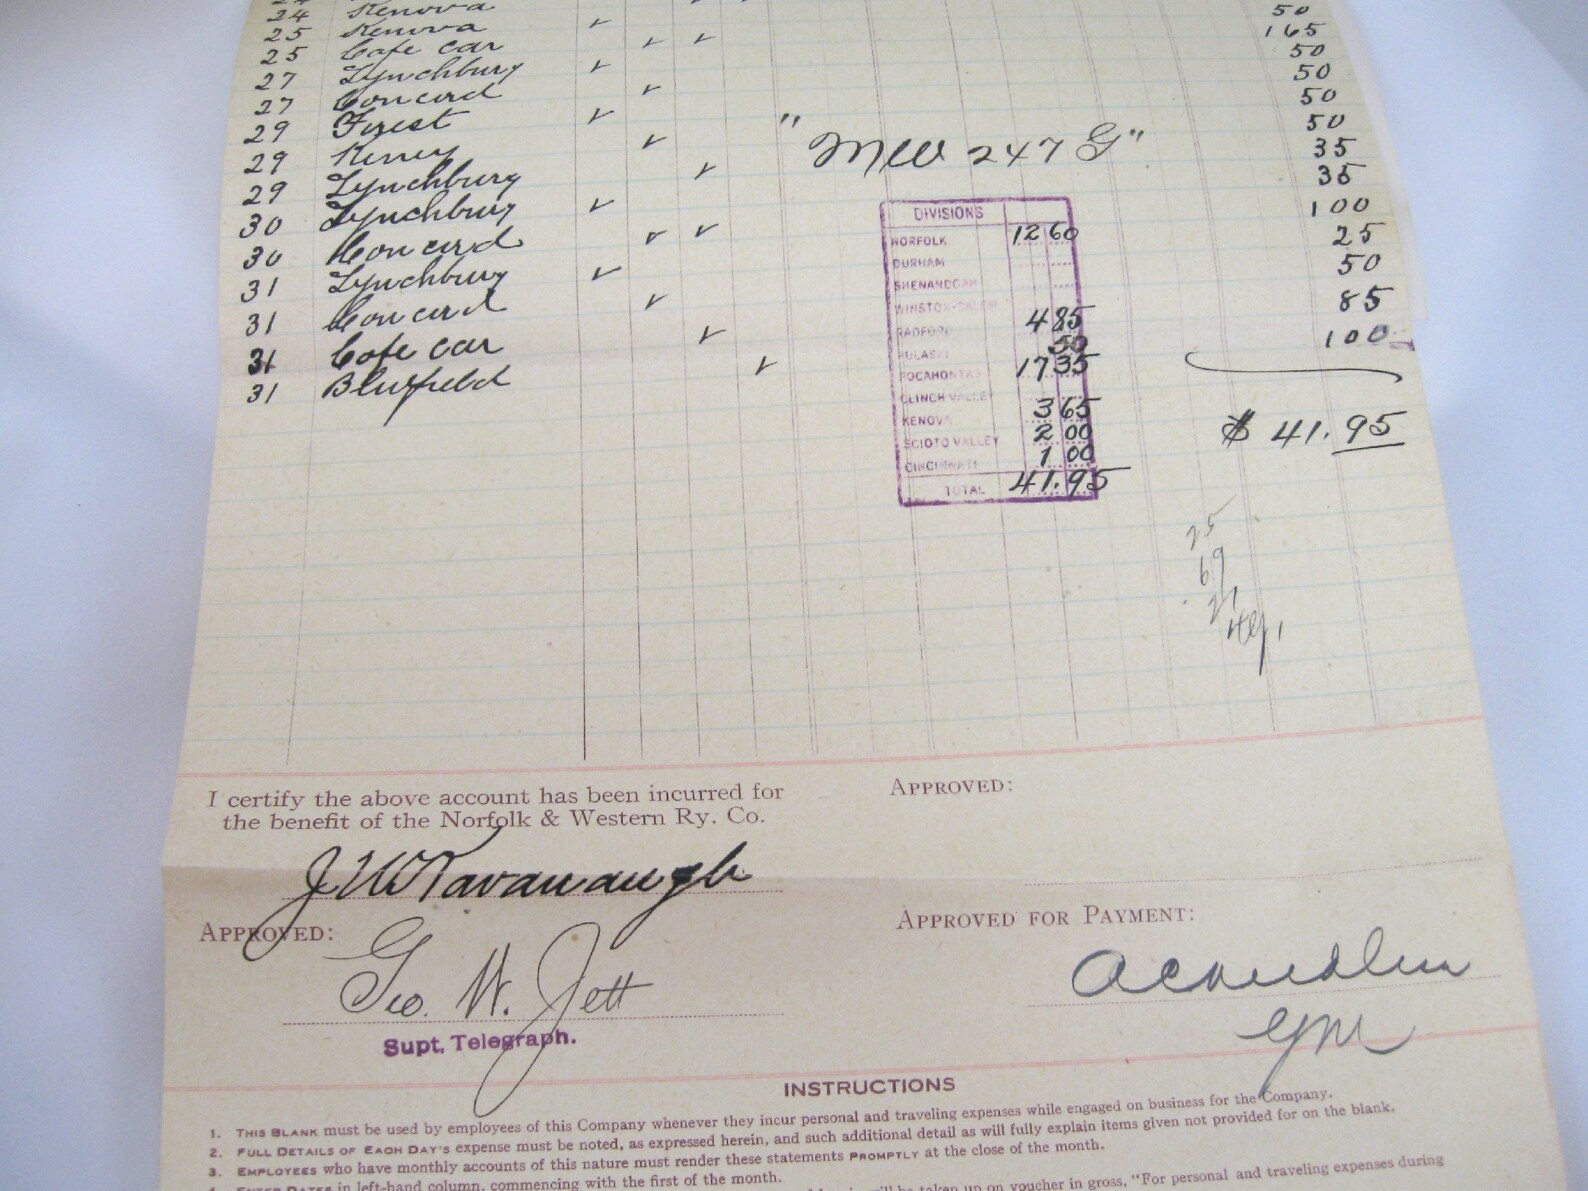 24 Kenova 50
25 Kenova 165
25 Cafe car 50
27 Lynchburg 50
27 Concord 50
29 Forest 50
29 Kinney 35
29 Lynchburg 35
30 Lynchburg 100
30 Concord 25
31 Lynchburg 50
31 Concord 85
31 Cafe car 100
31 Bluefield
"MW 247 G"
DIVISIONS
NORFOLK 12 60
DURHAM
SHENANDOAH
WINSTON-SALEM
RADFORD 4 85
PULASKI 50
POCAHONTAS 17 35
CLINCH VALLEY
KENOVA 3 65
SCIOTO VALLEY 2 00
CINCINNATI 1 00
TOTAL 41.95
$ 41.95
25
69
I certify the above account has been incurred for
the benefit of the Norfolk & Western Ry. Co.
J W Kavanaugh
APPROVED:
Geo. W. Jett
Supt. Telegraph.
APPROVED:
APPROVED FOR PAYMENT:
INSTRUCTIONS
1. THIS BLANK must be used by employees of this Company whenever they incur personal and traveling expenses while engaged on business for the Company.
2. FULL DETAILS OF EACH DAY'S expense must be noted, as expressed herein, and such additional detail as will fully explain items given not provided for on the blank.
3. EMPLOYEES who have monthly accounts of this nature must render these statements PROMPTLY at the close of the month.
ENTER DATES in left-hand column, commencing with the first of the month.
will be taken up on voucher in gross, "For personal and traveling expenses during